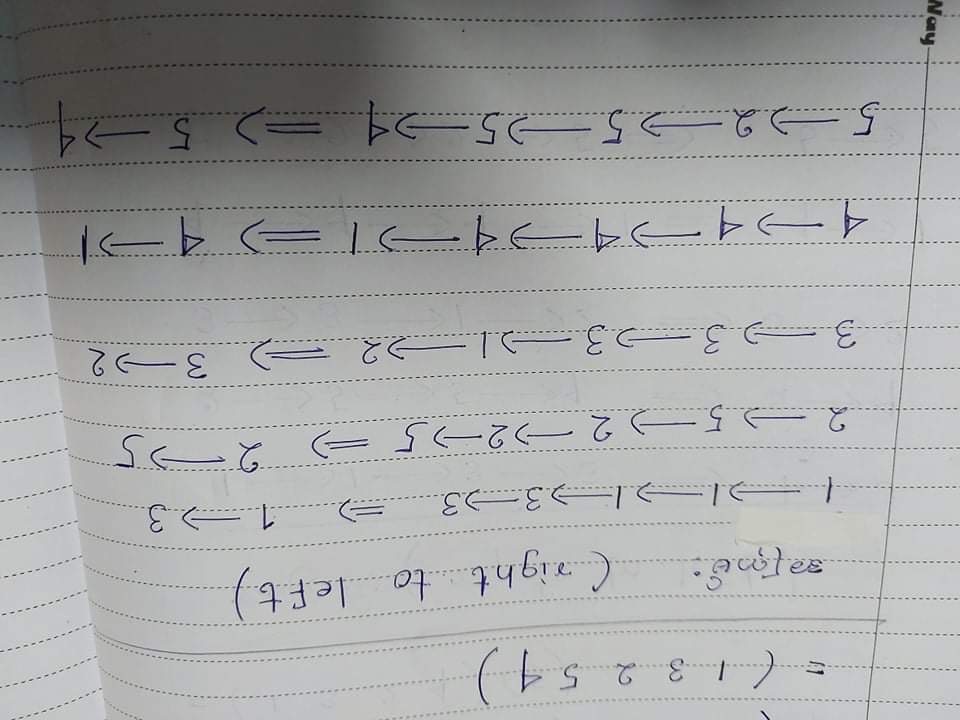 = ( 1 3 2 5 4 )
( right to left )
1 → 1 → 1 → 3 → 3 ⇒ 1 → 3
2 → 5 → 2 → 2 → 5 ⇒ 2 → 5
3 → 3 → 3 → 1 → 2 ⇒ 3 → 2
4 → 4 → 4 → 4 → 1 ⇒ 4 → 1
5 → 2 → 5 → 5 → 4 ⇒ 5 → 4